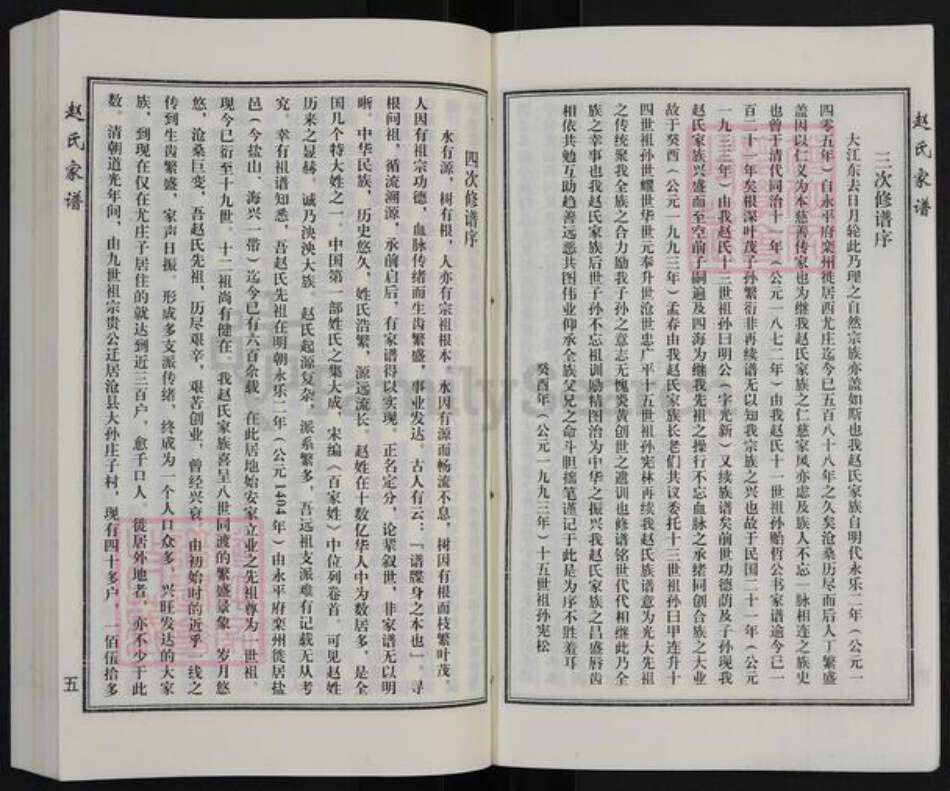 赵氏家谱
三次修谱序
大江东去日月轮此乃理之自然宗族亦盖如斯也我赵氏家族自明代永乐二年（公元一
四零五年）自永平府栾州徙居西尤庄迄今已五百八十八年之久矣沧桑历尽而后人丁繁盛
盖因以仁义为本慈善传家也为继我赵氏家族之仁慈家风亦虑及族人不忘一脉相连之族史
也曾于清代同治十一年（公元一八七二年）由我赵氏十一世祖孙贻哲公书家谱逾今已一
百二十一年矣根深叶茂子孙繁衍非再续谱无以知我宗族之兴也故于民国二十一年（公元
一九三三年）由我赵氏十三世祖孙曰明公（字光新）又续族谱矣前世功德荫及子孙现我
赵氏家族兴盛而至空前子嗣遍及四海为继我先祖之操行不忘血脉之承绪同创合族之大业
故于癸酉（公元一九九三年）孟春由我赵氏家族长老们共议委托十三世祖孙曰甲连升十
四世祖孙世耀世华世元奉升世沧世忠广平十五世祖孙宪林再续我赵氏族谱意为光大先祖
之传统聚我全族之合力励我子孙之意志无愧炎黄创世之遗训也修谱铭世代代相继此乃全
族之幸事也我赵氏家族后世子孙不忘祖训励精图治为中华之振兴我赵氏家族之昌盛唇齿
相依共勉互助趋善远恶共图伟业仰承全族父兄之命斗胆拙笔谨记于此是为序不胜羞耳
癸酉年（公元一九九三年）十五世祖孙宪松
四次修谱序
水有源，树有根，人亦有宗祖根本。水因有源而畅流不息，树因有根而枝繁叶茂，
人因有祖宗功德，血脉传绪而生齿繁盛，事业发达。古人有云：「谱牒身之本也」。寻
根问祖，循流溯源，承前启后，有家谱得以实现。正名定分，论辈叙世，非家谱无以明
晰。中华民族，历史悠久，姓氏浩繁，源远流长。赵姓在十数亿华人中为数居多，是全
国几个特大姓之一。中国第一部姓氏之集大成，宋编《百家姓》中位列卷首。可见赵姓
历来之显赫。诚乃泱泱大族。赵氏起源复杂，派系繁多，吾远祖支派难有记载无从考
究。幸有祖谱知悉，吾赵氏先祖在明朝永乐二年（公元1404年）由永平府栾州徙居盐
邑（今盐山、海兴一带）迄今已有六百余载。在此居地始安家立业之先祖尊为一世祖。
现今已衍至十九世。十二祖尚有健在。我赵氏家族喜呈八世同渡的繁盛景象。岁月悠
悠，沧桑巨变，吾赵氏先祖，历尽艰辛，艰苦创业，曾经兴衰，由初始时的近乎一线之
传到生齿繁盛，家声日振。形成多支派传绪，终成为一个人口众多，兴旺发达的大家
族，到现在仅在尤庄子居住的就达到近三百户，愈千口人。徙居外地者，亦不少于此
数。清朝道光年间，由九世祖宗贵公迁居沧县大孙庄子村，现有四十多户，一佰伍拾多
赵氏家谱
五